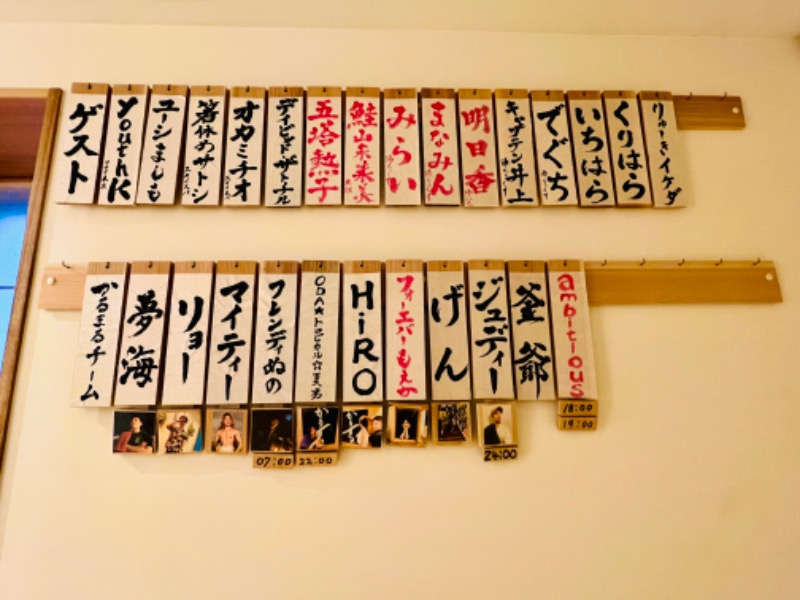 りゅーきイケダ
くりはら
いちはら
でぐち
キャプテン井上
明日香
まなみん
みらい
鮭山未菜美
五塔熱子
デイビッドザトナル
オカミチオ
箸休めサトシ
ユーシましも
youthK
ゲスト
ambitious
18:00
19:00
釜爺
ジュディー
24:00
げん
フォーエバーもえみ
HiRO
ODA★トロピカル☆美男
22:00
フレンディぬの
07:00
マイティー
リョー
夢海
かるまるチーム